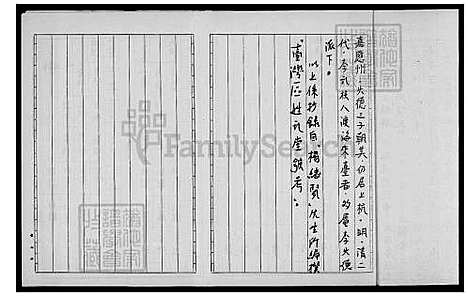 嘉應州。火德之子朝美。仍居上杭。明。清二
代。李氏族人渡海來臺者。均屬李火德
派下。
以上係抄錄自。楊緒賢。先生所編撰
臺灣區姓氏堂號考。
FamilySearch